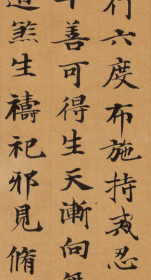 行六度布施持戒忍
十善可得生天漸向
煞生禱祀邪見脩